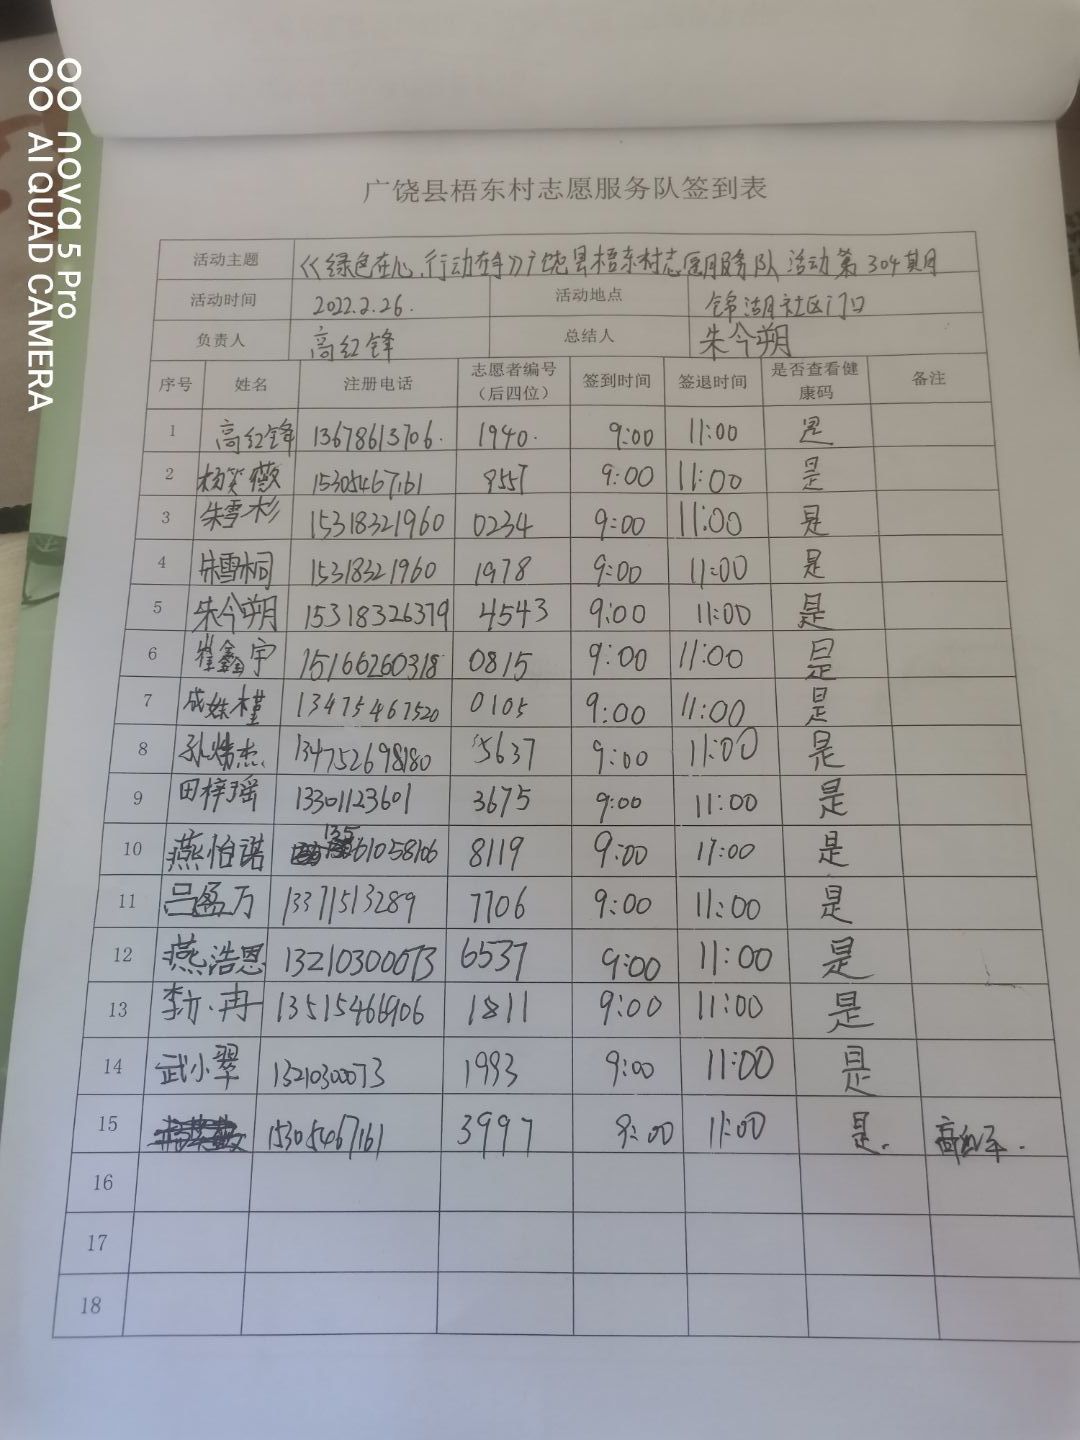 nova 5 Pro
AI QUAD CAMERA
广饶县梧东村志愿服务队签到表
活动主题 《绿色在心,行动在手》广饶县梧东村志愿服务队活动第304期
活动时间 2022.2.26. 活动地点 锦湖社区门口
负责人 高红锋 总结人 朱今朔
序号 姓名 注册电话 志愿者编号(后四位) 签到时间 签退时间 是否查看健康码 备注
1 高红锋 13678613706. 1940. 9:00 11:00 是
2 杨笑薇 15305467161 9:00 11:00 是
3 朱雪杉 15318321960 0234 9:00 11:00 是
4 朱雪桐 15318321960 1978 9:00 11:00 是
5 朱今朔 15318326379 4543 9:00 11:00 是
6 崔鑫宇 15166260318 0815 9:00 11:00 是
7 成姝槿 13475467520 0105 9:00 11:00 是
8 孙炜杰 134752698180 5637 9:00 11:00 是
9 田梓瑶 13301123601 3675 9:00 11:00 是
10 燕怡诺 13561058106 8119 9:00 11:00 是
11 吕盈万 13371513289 7706 9:00 11:00 是
12 燕浩恩 13210300073 6537 9:00 11:00 是
13 李亦冉 13515466906 1811 9:00 11:00 是
14 武小翠 13210300073 1993 9:00 11:00 是
15 15305467161 3997 9:00 11:00 是.
16
17
18